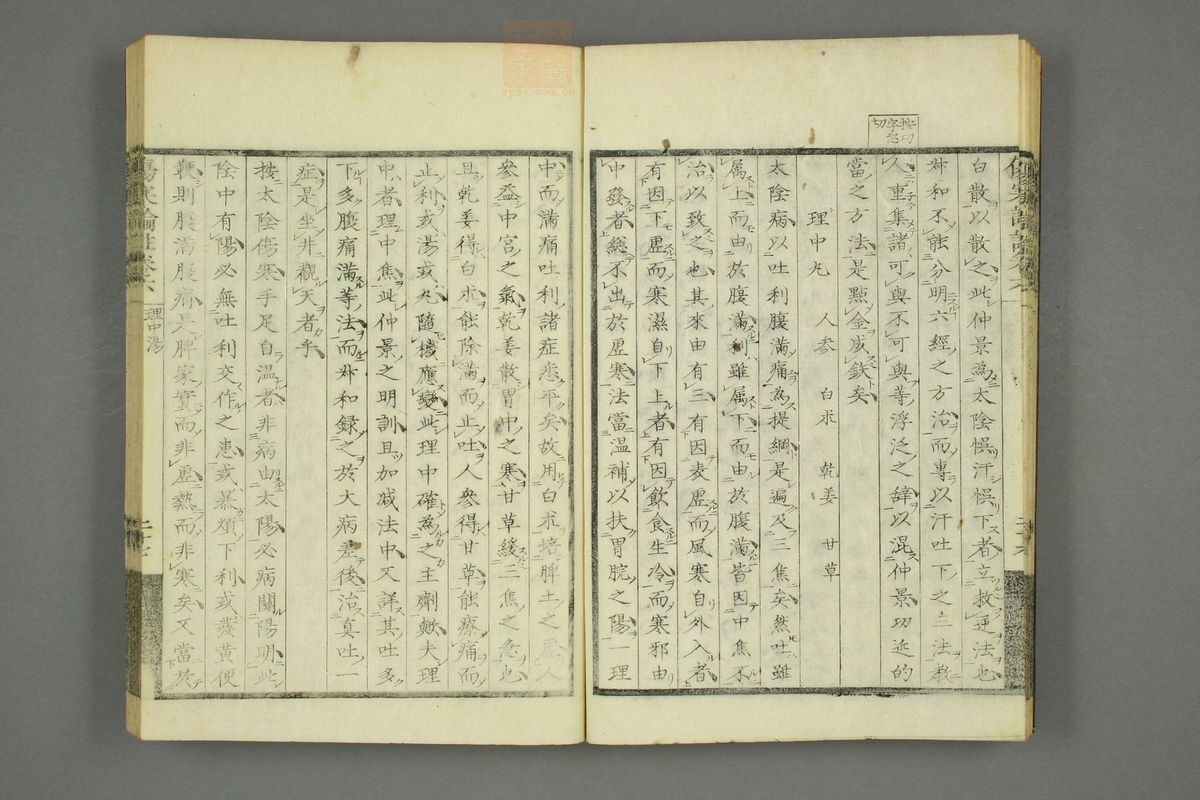 白散以散之此仲景為太陰悞汗悞下者立救逆法也
叔和不能分明六經之方治而專以汗吐下之三法教
人重集諸可與不可與等浮泛之辭以混仲景切近的
當之方法是點金成鉄矣
理中丸 人参 白朮 乾姜 甘草
太陰病以吐利腹滿痛為提綱是遍及三焦矣然吐雖
属上而由於腹滿利雖属下而由於腹滿皆因中焦不
治以致之也其來由有三有因表虛而風寒自外入者
有因下虛而寒濕自下上者有因飲食生冷而寒邪由
中發者總不出於虛寒法當温補以扶胃脘之陽一理
中而滿痛吐利諸症悉平矣故用白朮培脾土之虛人
參益中宮之氣乾姜散胃中之寒甘草緩三焦之急也
且乾姜得白朮能除滿而止吐人參得甘草能療痛而
止利或湯或丸隨機應變此理中確為之主劑歟夫理
中者理中焦此仲景之明訓且加减法中又詳其吐多
下多腹痛滿等法而叔和録之於大病差後治真吐一
症是坐井觀天者乎
按太陰傷寒手足自温者非病由太陽必病關陽明此
陰中有陽必無吐利交作之患或暴煩下利或發黄便
鞕則腹滿腹痛是脾家實而非虛熱而非寒矣又當於
傷寒論註卷六
理中湯